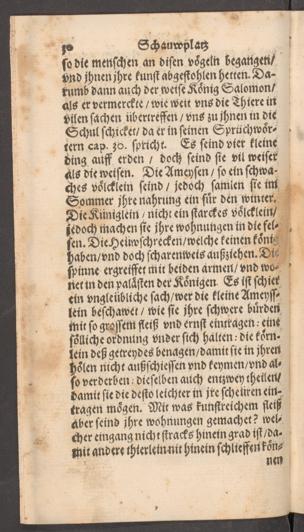 30 Schauwplatz
so die menschen an disen vögeln begangen/
vnd jhnen jhre kunst abgestohlen hetten. Da-
rumb dann auch der weise König Salomon/
als er vermerckte / wie weit vns die Thiere in
vilen sachen übertreffen / vns zu jhnen in die
Schul schicket / da er in seinen Sprüchwör-
tern cap. 30. spricht. Es seind vier kleine
ding auff erden / doch seind sie vil weiser
als die weisen. Die Ameysen / so ein schwa-
ches völcklein seind / jedoch samlen sie im
Sommer jhre nahrung ein für den winter.
Die Küniglein / nicht ein starckes völcklein/
jedoch machen sie jhre wohnungen in die fel-
sen. Die Heüwschrecken / welche keinen könig
haben / vnd doch scharenweis außziehen. Die
spinne ergreiffet mit beiden armen / vnd wo-
net in den palästen der Königen. Es ist schier
ein vngleübliche sach / wer die kleine Ameyss-
lein beschawet / wie sie jhre schwere bürden
mit so grossem fleiß vnd ernst eintragen: eine
sölliche ordnung vnder sich halten: die körn-
lein deß getreydes benagen / damit sie in jhren
hölen nicht außschiessen vnd keymen / vnd al-
so verderben: dieselben auch entzwey theilen/
damit sie die desto leichter in jre scheüren ein-
tragen mögen. Mit was kunstreichem fleiß
aber seind jhre wohnungen gemachet? wel-
cher eingang nicht stracks hinein grad ist / da-
mit andere thierlein nit hinein schlieffen kön-
nen